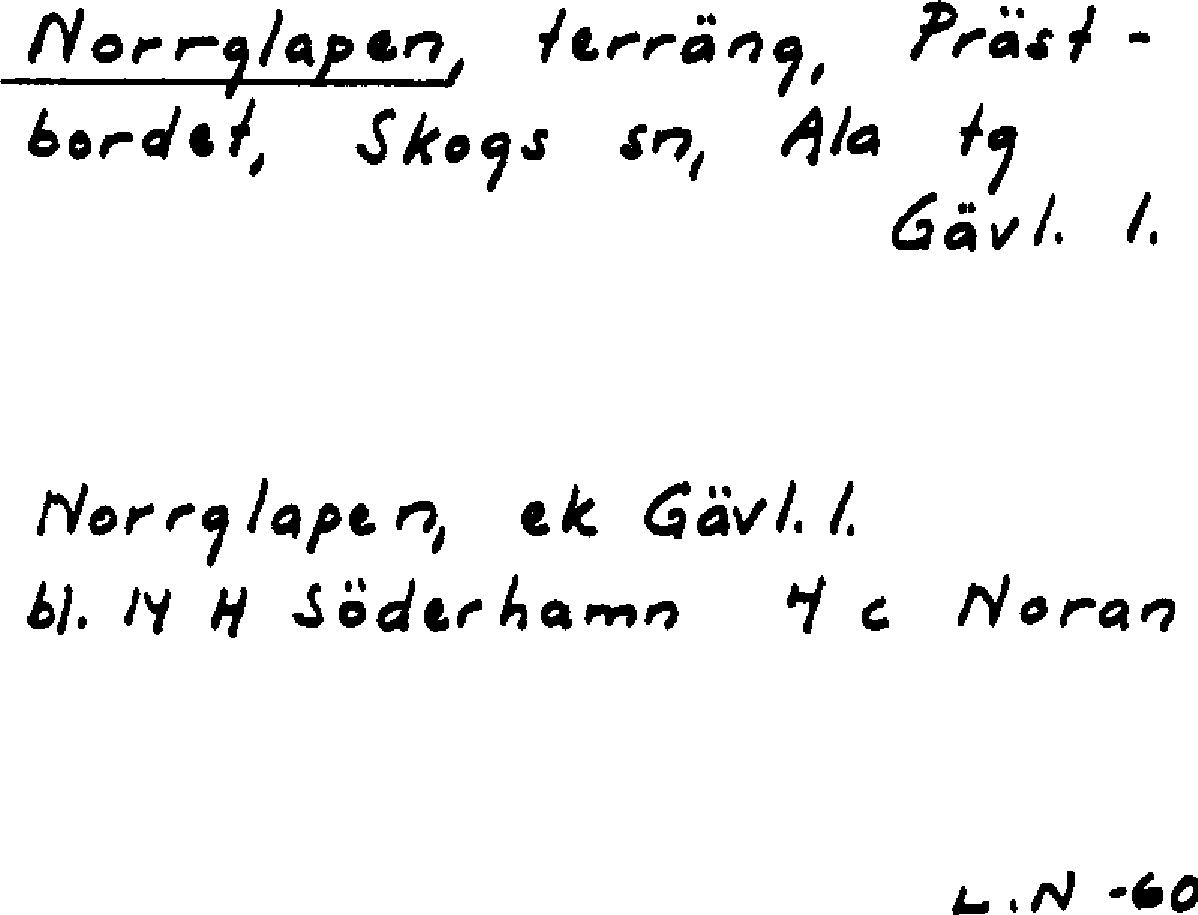 Norrglapen, terräng, Präst-
bordet, Skogs sn, Ala tg
Gävl. l.
Norrglapen, ek Gävl. l.
bl. 14 H Söderhamn 4 c Noran
L.N -60